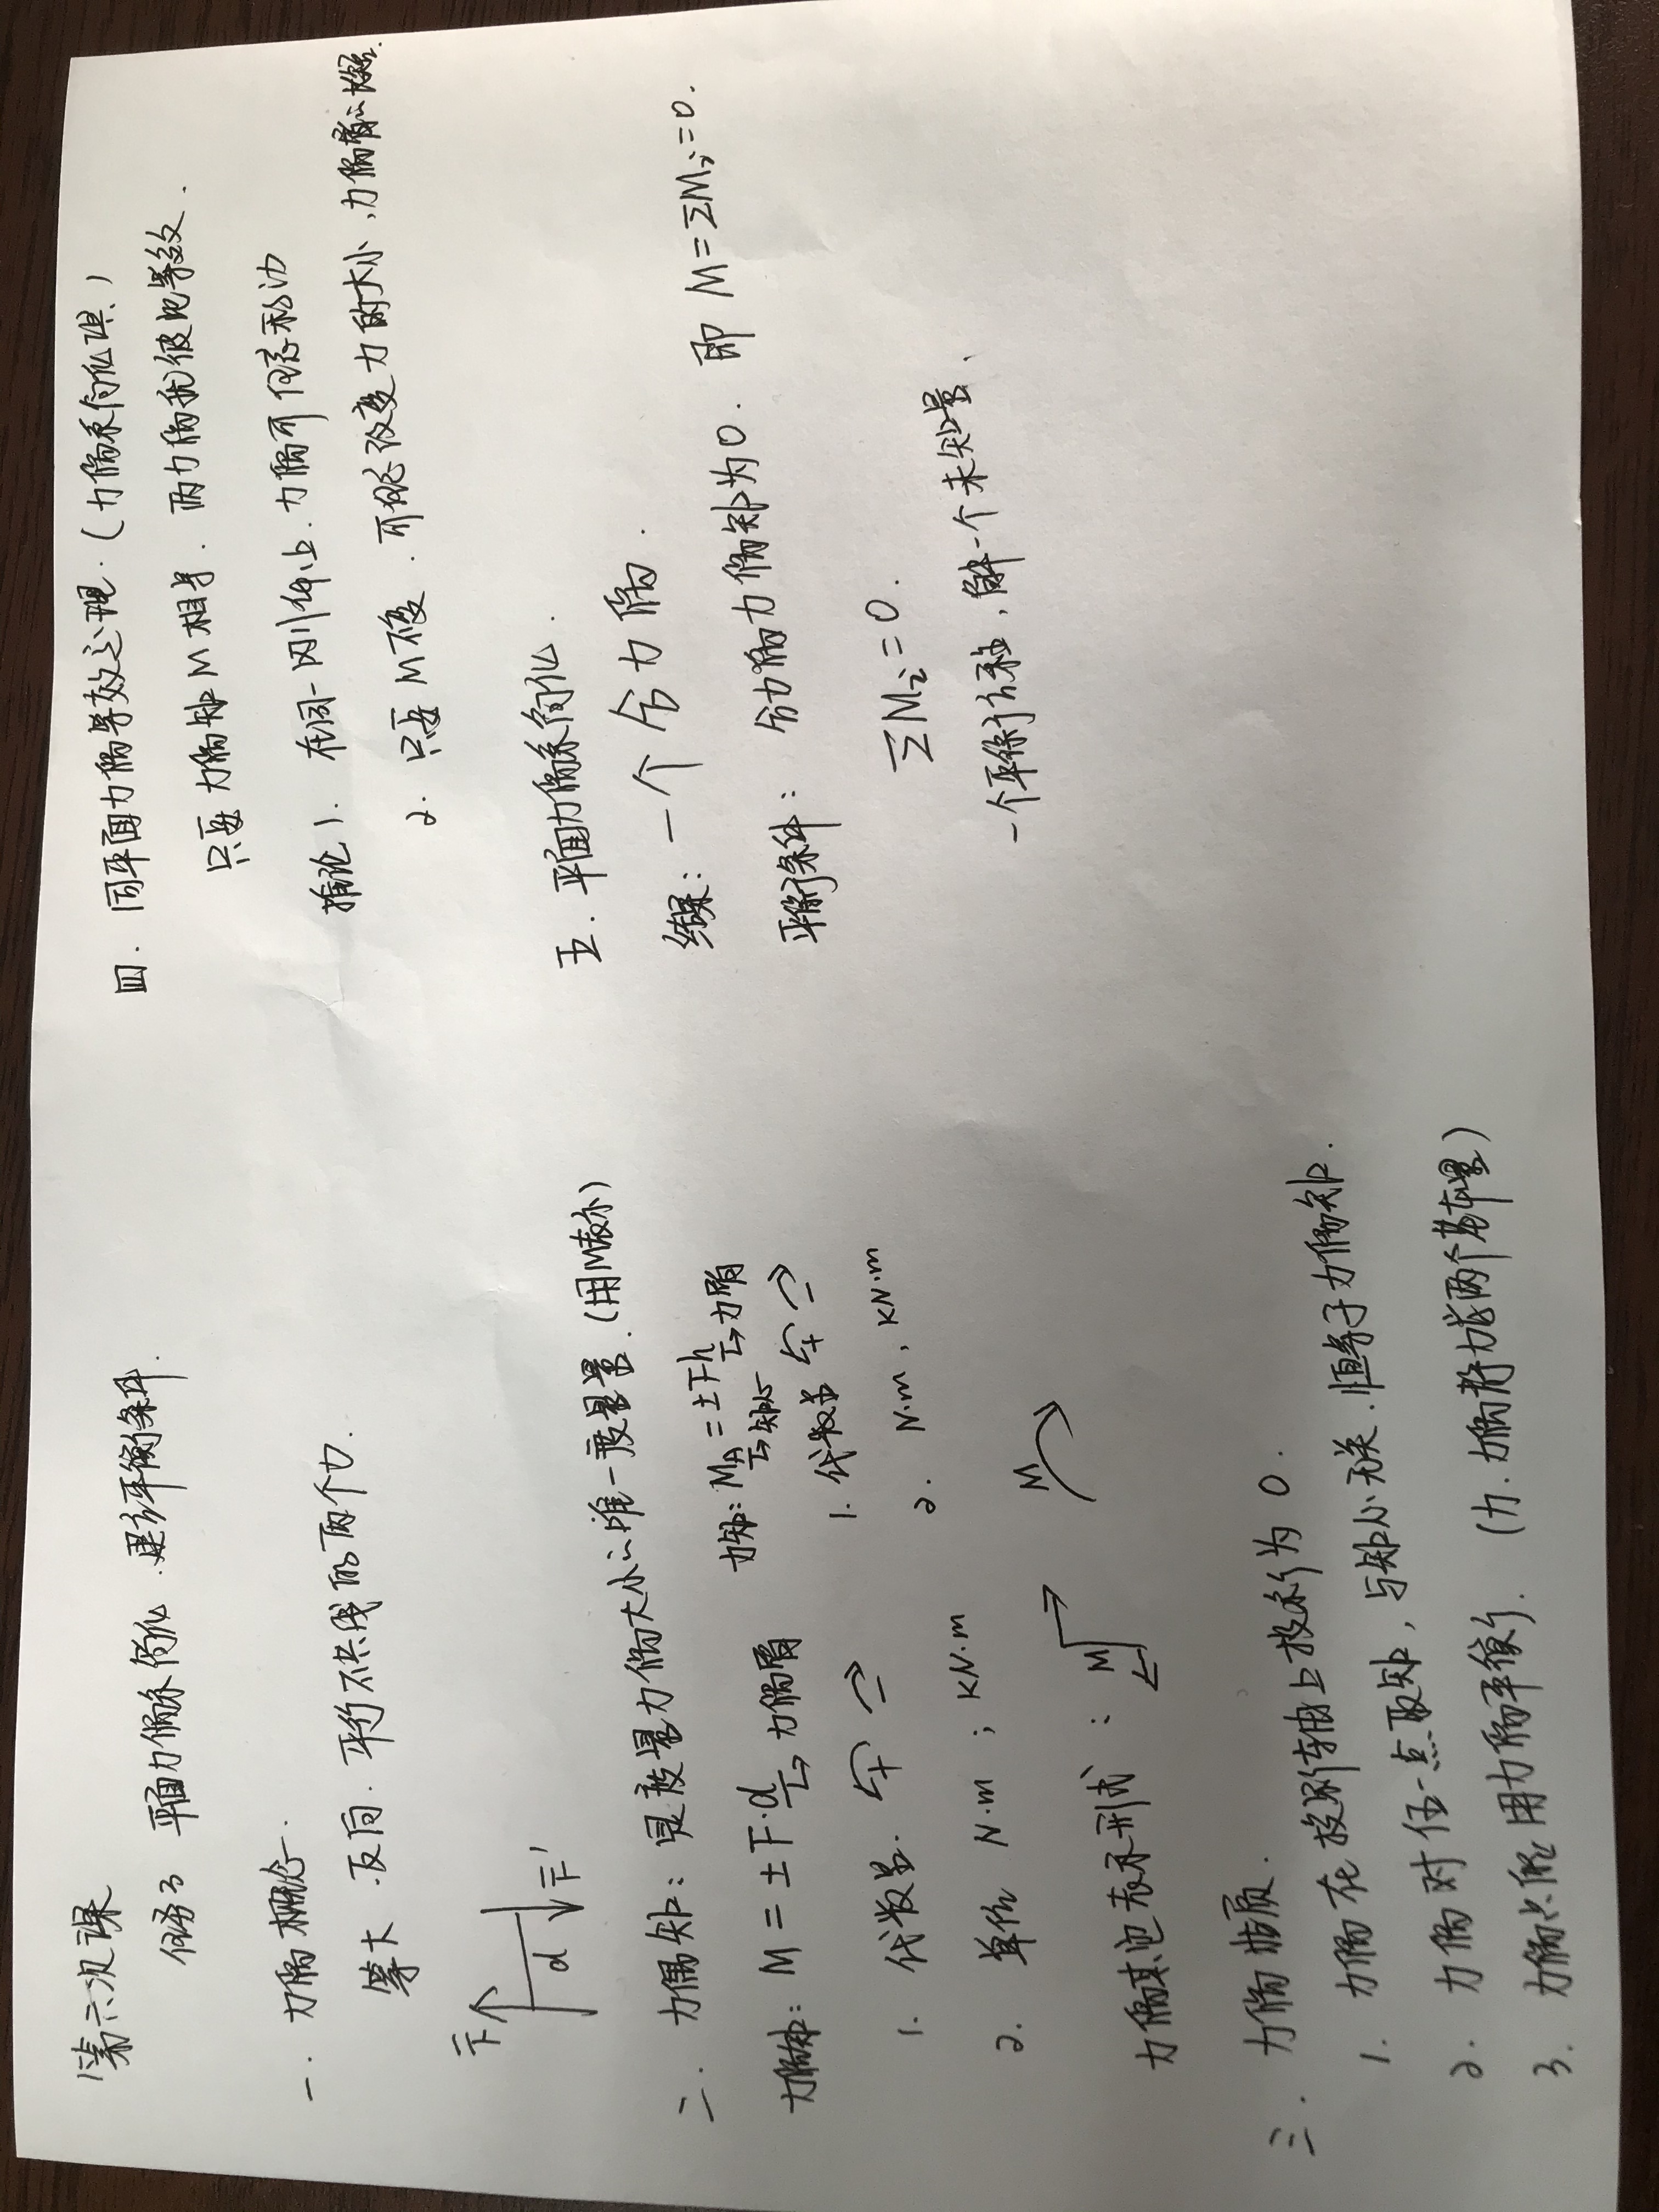 第六次课
任务3 平面力偶系简化.建立平衡条件.
一. 力偶概念.
等大.反向.平行不共线的两个力.
F
d
F'
二. 力偶矩:是度量力偶大小的唯一度量量.(用M表示)
力偶矩: M=±F·d
力偶臂
1. 代数量. + -
2. 单位 N·m ; KN·m
力偶其他表示形式: M
M
力矩: MA=±Fh
矩心 力臂
1. 代数量 + -
2. N·m , KN·m
三. 力偶性质.
1. 力偶在投影轴上投影为0.
2. 力偶对任一点取矩,与矩心无关.恒等于力偶矩.
3. 力偶只能用力偶平衡. (力.力偶静力学两个基本量)
四. 同平面力偶等效定理.(力偶系简化理.)
只要力偶矩M相等. 两力偶就彼此等效.
推论1. 在同一刚体上.力偶可任意移动
2. 只要M不变.可任意改变力的大小,力偶臂的
五. 平面力偶系简化.
结果:一个合力偶.
平衡条件: 合力偶的力偶矩为0. 即 M=ΣMi=0.
ΣMi=0.
一个平衡方程,解一个未知量、